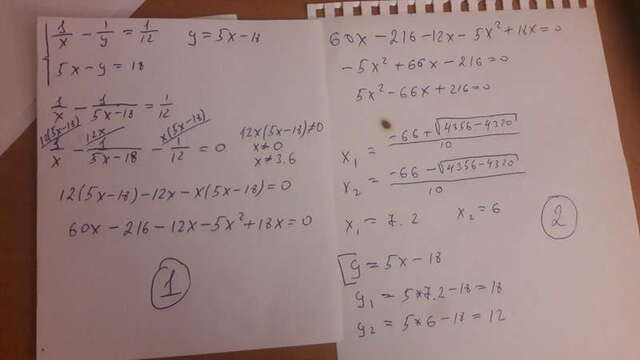 1/x - 1/y = 1/12 y = 5x-18
5x - y = 18
1/x - 1/(5x-18) = 1/12
12(5x-18) 12x x(5x-18)
1/x - 1/(5x-18) - 1/12 = 0 12x(5x-18)≠0
x≠0
x≠3.6
12(5x-18)-12x-x(5x-18)=0
60x-216-12x-5x²+18x=0
1
60x-216-12x-5x²+18x=0
-5x²+66x-216=0
5x²-66x+216=0
x₁ = (-66+√(4356-4320))/10
x₂ = (-66-√(4356-4320))/10
x₁ = 7.2 x₂ = 6
2
y = 5x-18
y₁ = 5*7.2-18=18
y₂ = 5*6-18=12